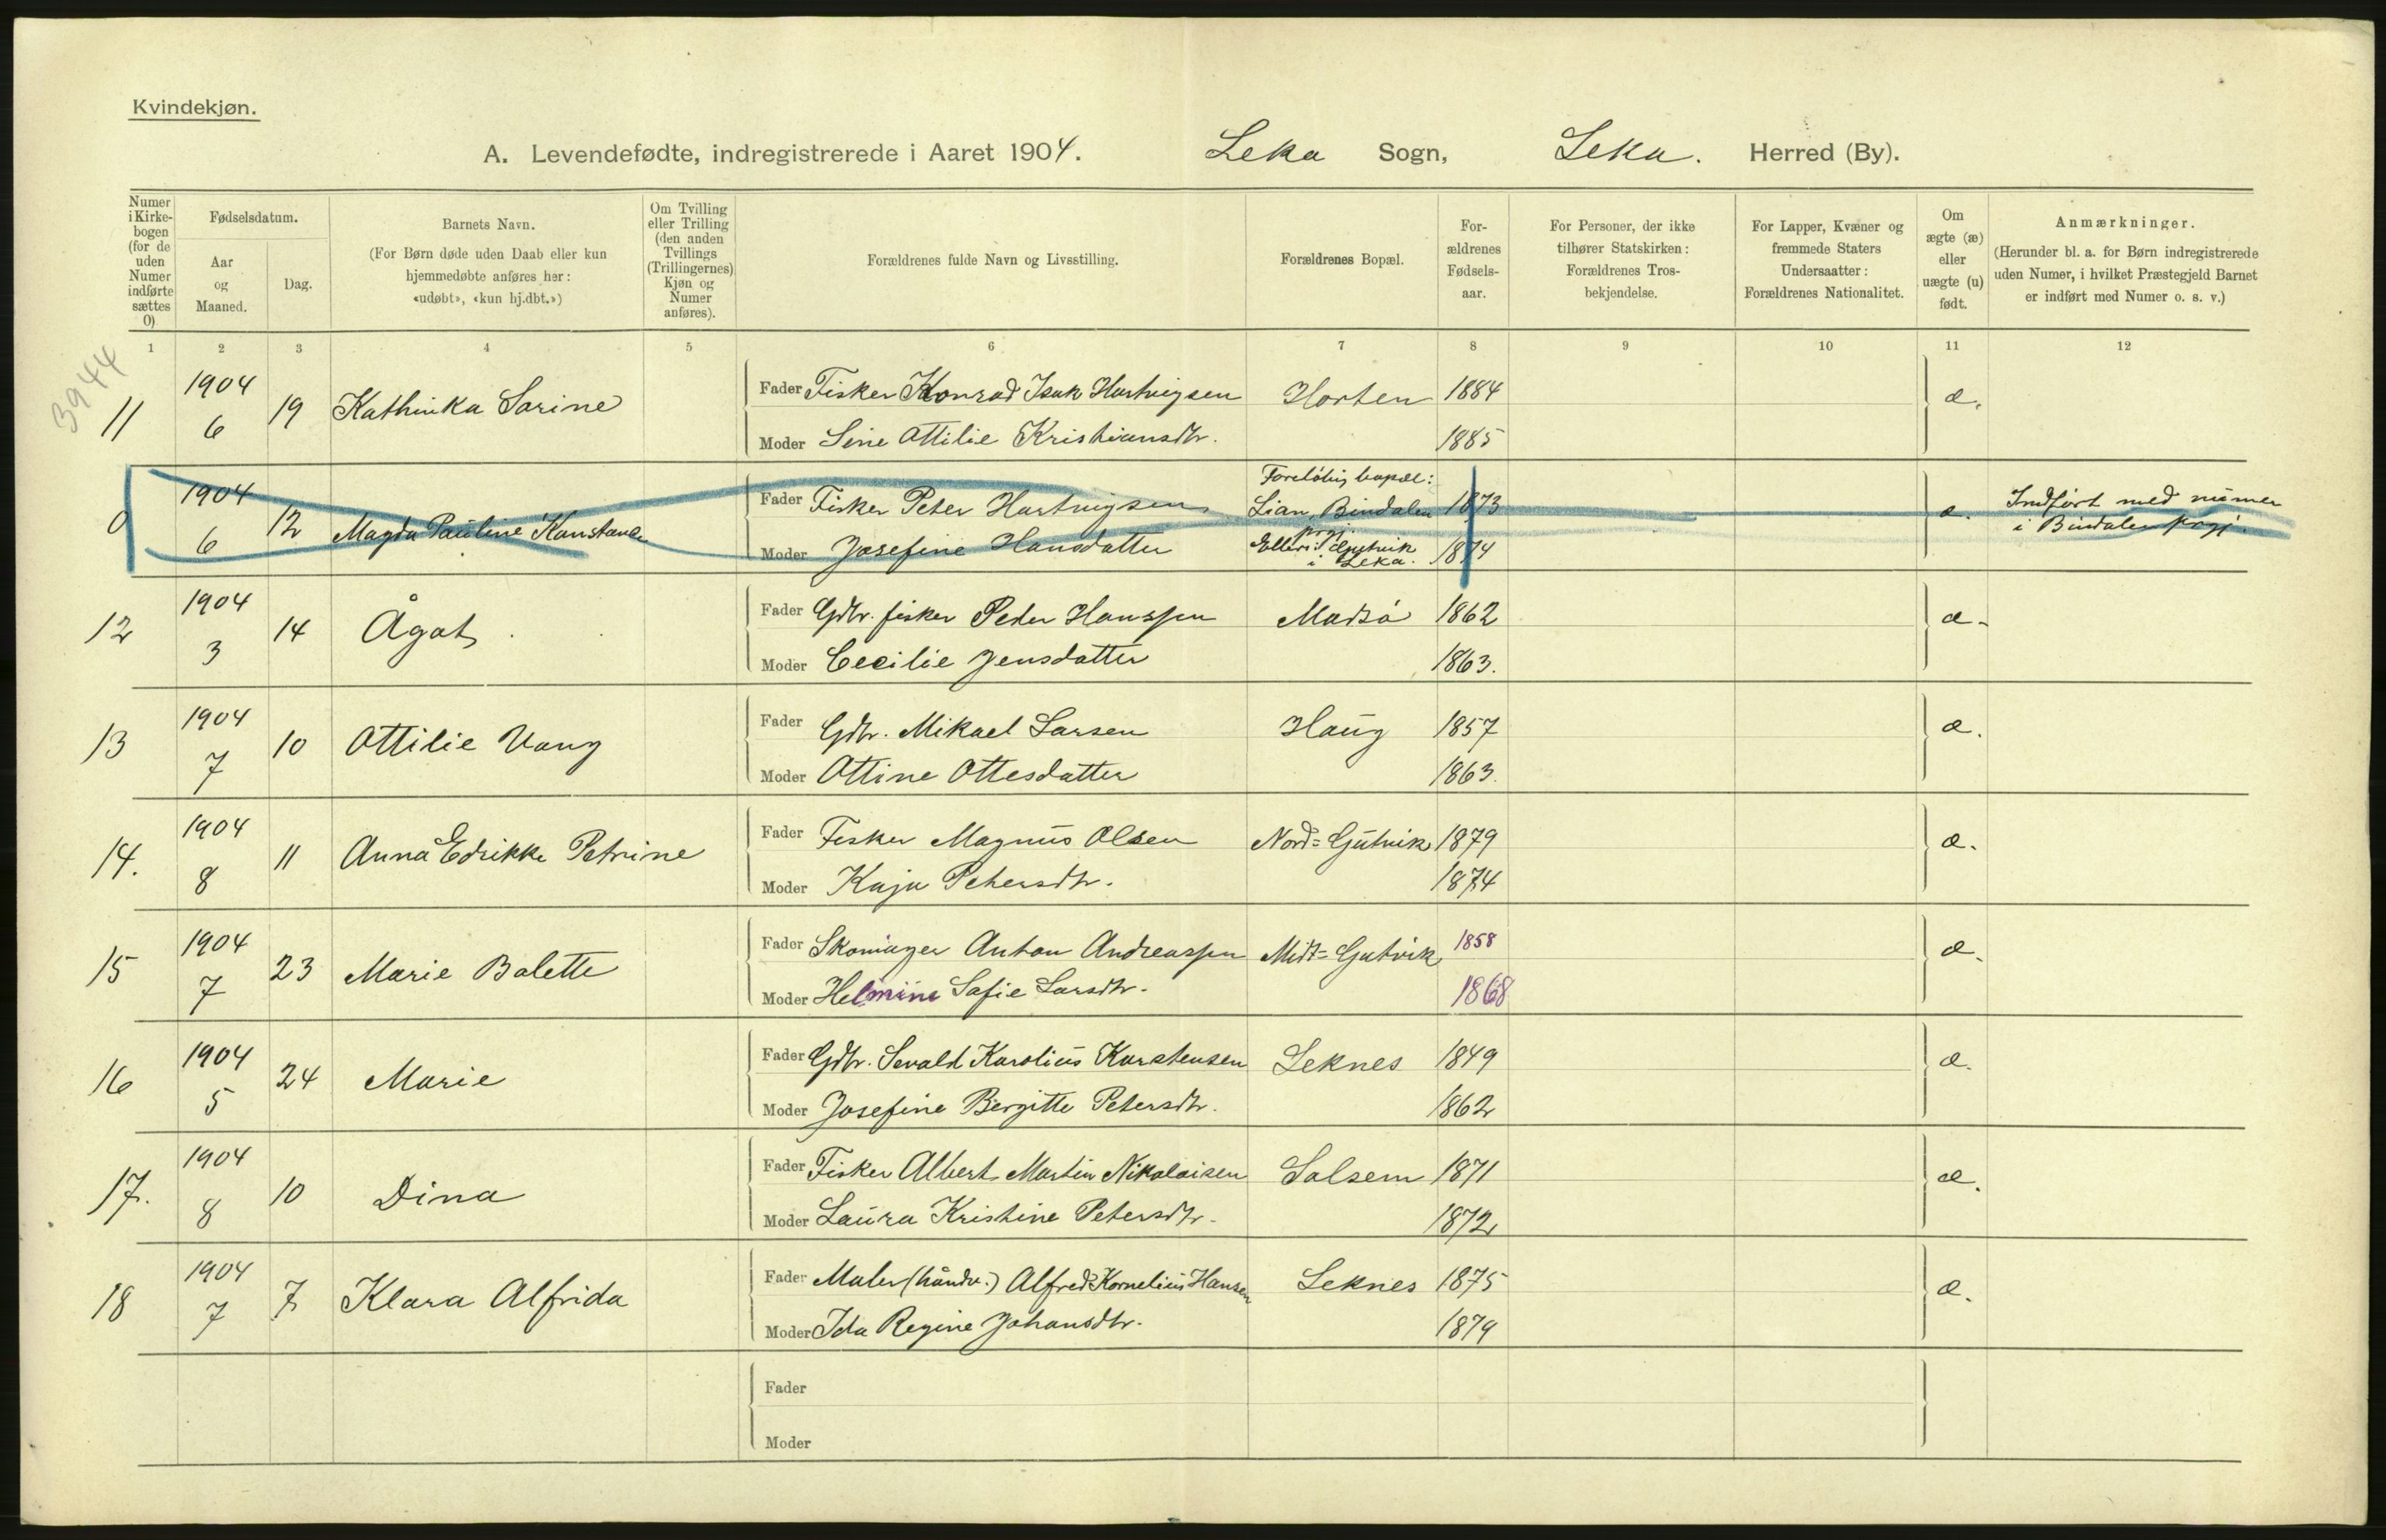 Kvindekjøn.
A. Levendefødte, indregistrerede i Aaret 1904. Leka Sogn, Leka. Herred (By).
Numer i Kirkebogen (for de uden Numer indførte sættes 0)
Fødselsdatum.
Aar og Maaned.
Dag.
Barnets Navn.
(For Børn døde uden Daab eller kun hjemmedøbte anføres her: «udøbt», «kun hj.dbt.»)
Om Tvilling eller Trilling (den anden Tvillings (Trillingernes) Kjøn og Numer anføres).
Forældrenes fulde Navn og Livsstilling.
Forældrenes Bopæl.
Forældrenes Fødselsaar.
For Personer, der ikke tilhører Statskirken: Forældrenes Trosbekjendelse.
For Lapper, Kvæner og fremmede Staters Undersaatter: Forældrenes Nationalitet.
Om ægte (æ) eller uægte (u) født.
Anmærkninger.
(Herunder bl. a. for Børn indregistrerede uden Numer, i hvilket Præstegjeld Barnet er indført med Numer o. s. v.)
1 2 3 4 5 6 7 8 9 10 11 12
3944
11 1904 6 19 Kathinka Sarine Fader Fisker Konrad Isak Hartvigsen Horten 1884 æ.
Moder Sine Attilie Kristiansdtr. 1885
0 1904 6 12 Magda Pauline Konstance Fader Fisker Peter Hartvigsen Foreløbig bopæl: Lian, Bindalen prgj. 1873 æ. Indført med numer i Bindalen prgj.
Moder Josefine Hansdatter Ellers Gutvik i Leka. 1874
12 1904 3 14 Ågot Fader Gdbr. fisker Peder Hanssen Madsö 1862 æ.
Moder Cecilie Jensdatter 1863.
13 1904 7 10 Ottilie Vang Fader Gdbr. Mikael Larsen Haug 1857 æ.
Moder Ottine Ottesdatter 1863.
14. 1904 8 11 Anna Edrikke Petrine Fader Fisker Magnus Olsen Nord-Gutvik 1879 æ.
Moder Kaja Petersdtr. 1874
15 1904 7 23 Marie Balette Fader Skomager Anton Andreassen Midt-Gutvik 1858 æ.
Moder Helmine Sofie Larsdtr. 1868
16 1904 5 24 Marie Fader Gdbr. Sevald Karolius Karstensen Leknes 1849 æ.
Moder Josefine Bergitte Petersdtr. 1862
17. 1904 8 10 Dina Fader Fisker Albert Martin Nikolaisen Solsem 1871 æ.
Moder Laura Kristine Petersdtr. 1872
18 1904 7 7 Klara Alfrida Fader Maler (håndv.) Alfred Kornelius Hansen Leknes 1875 æ.
Moder Ida Regine Johansdtr. 1879
Fader
Moder